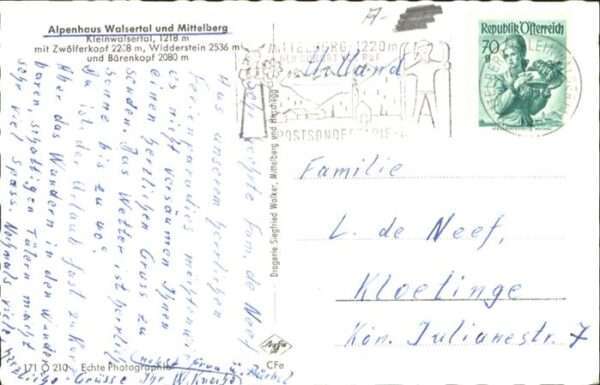 Alpenhaus Walsertal und Mittelberg
Kleinwalsertal, 1218 m
mit Zwölferkopf 2228 m, Widderstein 2536 m
und Bärenkopf 2080 m
Fam. de Neef
Aus unserem herrlichen
Ferienparadies möchten wir
es nicht versäumen Ihnen
einen herzlichen Gruss zu
senden. Das Wetter ist herrlich
Sonne bis zu
Ja, ist der Urlaub fast zu kurz
Aber das Wandern in den wunder-
baren schattigen Tälern macht
sehr viel Spass. Nochmals viele
herzliche Grüsse Ihr W.
nebst Frau u.
171 O 210 Echte Photographie
Drogerie Siegfried Walker, Mittelberg und Hirschegg
CFe
A-
MITTELBERG 1220 m
POSTSONDE
Holland
Republik Österreich
70
g
Familie
L. de Neef,
Kloetinge
Kon. Julianestr. 7